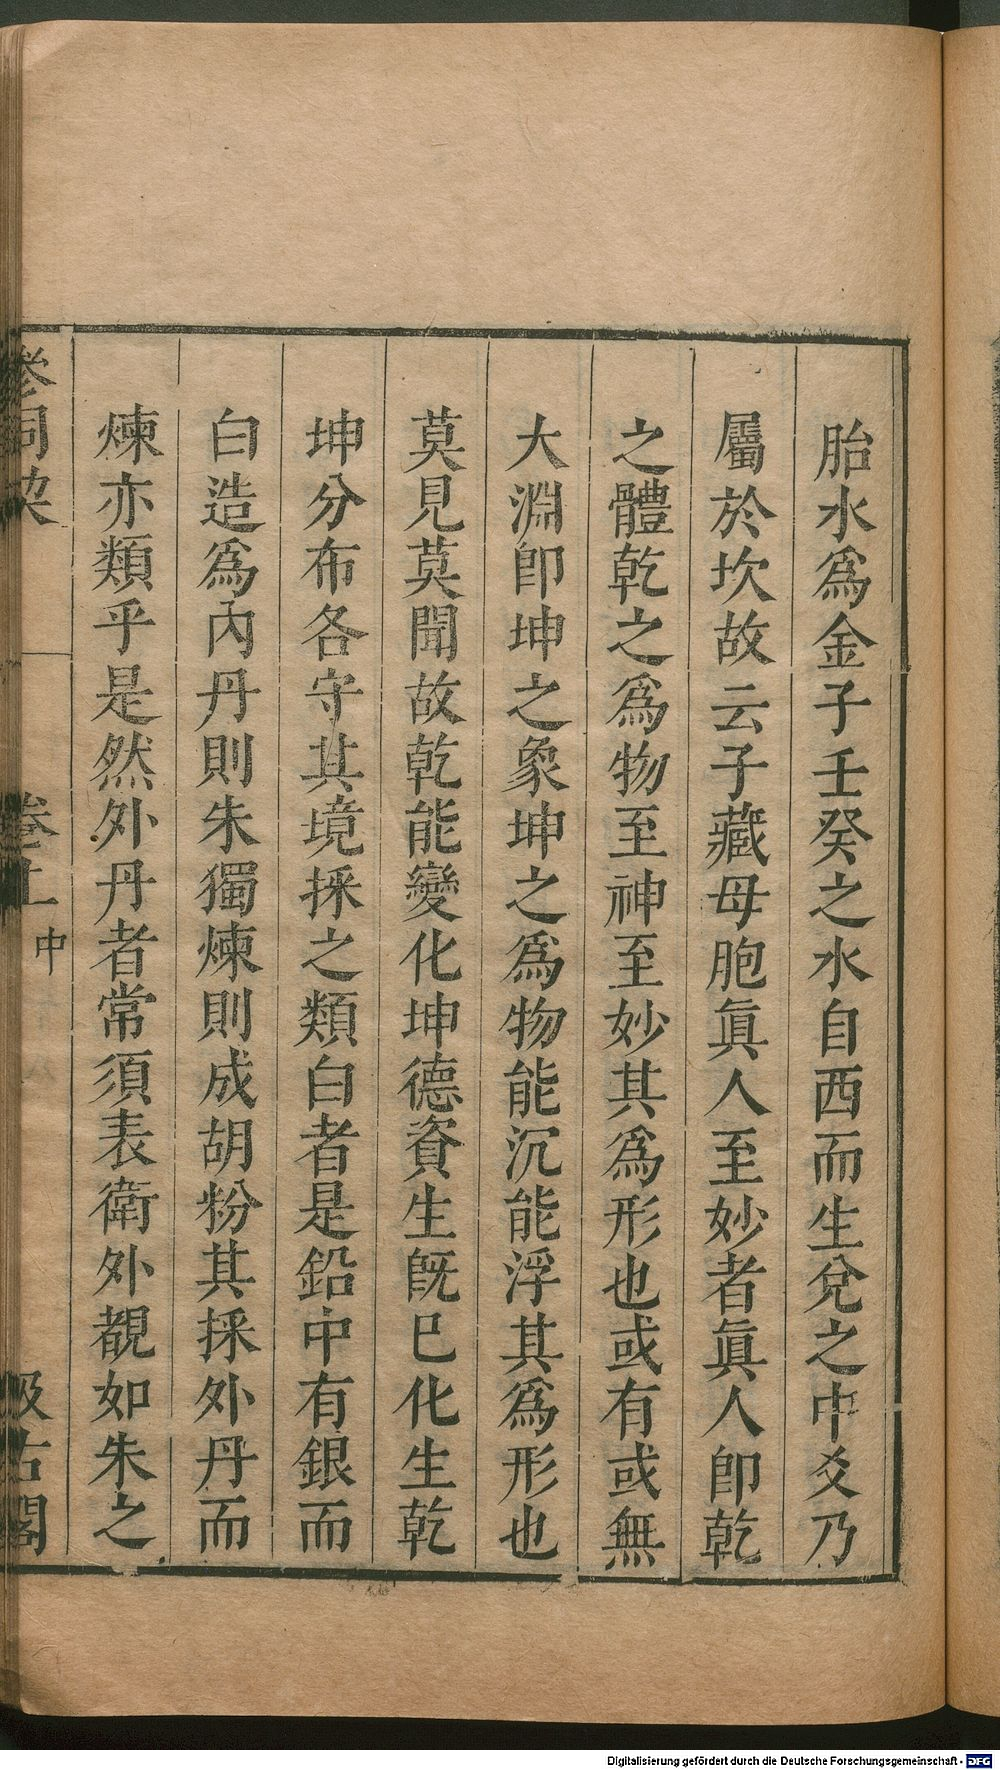 胎水爲金子壬癸之水自西而生兌之中爻乃
屬於坎故云子藏母胞眞人至妙者眞人卽乾
之體乾之爲物至神至妙其爲形也或有或無
大淵卽坤之象坤之爲物能沉能浮其爲形也
莫見莫聞故乾能變化坤德資生旣巳化生乾
坤分布各守其境採之類白者是鉛中有銀而
白造爲內丹則朱獨煉則成胡粉其採外丹而
煉亦類乎是然外丹者常須表衛外覩如朱之
參同契 卷上 中 汲古閣
Digitalisierung gefördert durch die Deutsche Forschungsgemeinschaft - DFG